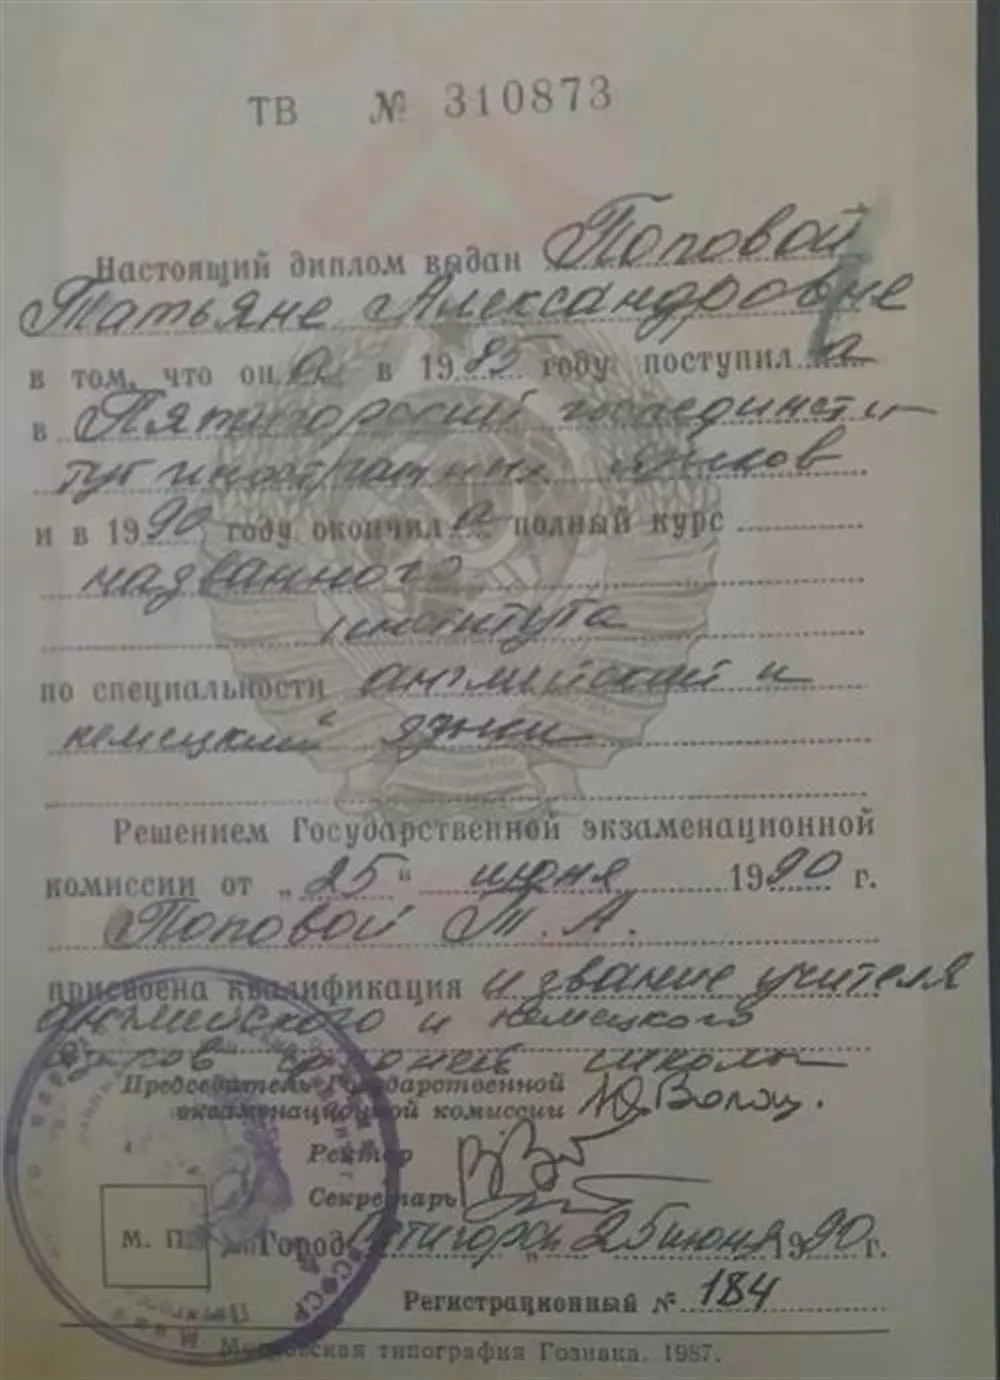 ТВ № 310873
Настоящий диплом выдан Поповой
Татьяне Александровне
в том, что он а в 1985 году поступил а
в Пятигорский госпединсти-
тут иностранных языков
и в 1990 году окончил а полный курс
названного
института
по специальности английский и
немецкий языки
Решением Государственной экзаменационной
комиссии от „25“ июня 1990 г.
Поповой Т. А.
присвоена квалификация и звание учителя
английского и немецкого
языков средней школы
Председатель Государственной
экзаменационной комиссии
Ректор
Секретарь
М. П. Город Пятигорск „25 июня 1990 г.
Регистрационный № 184
Московская типография Гознака. 1987.